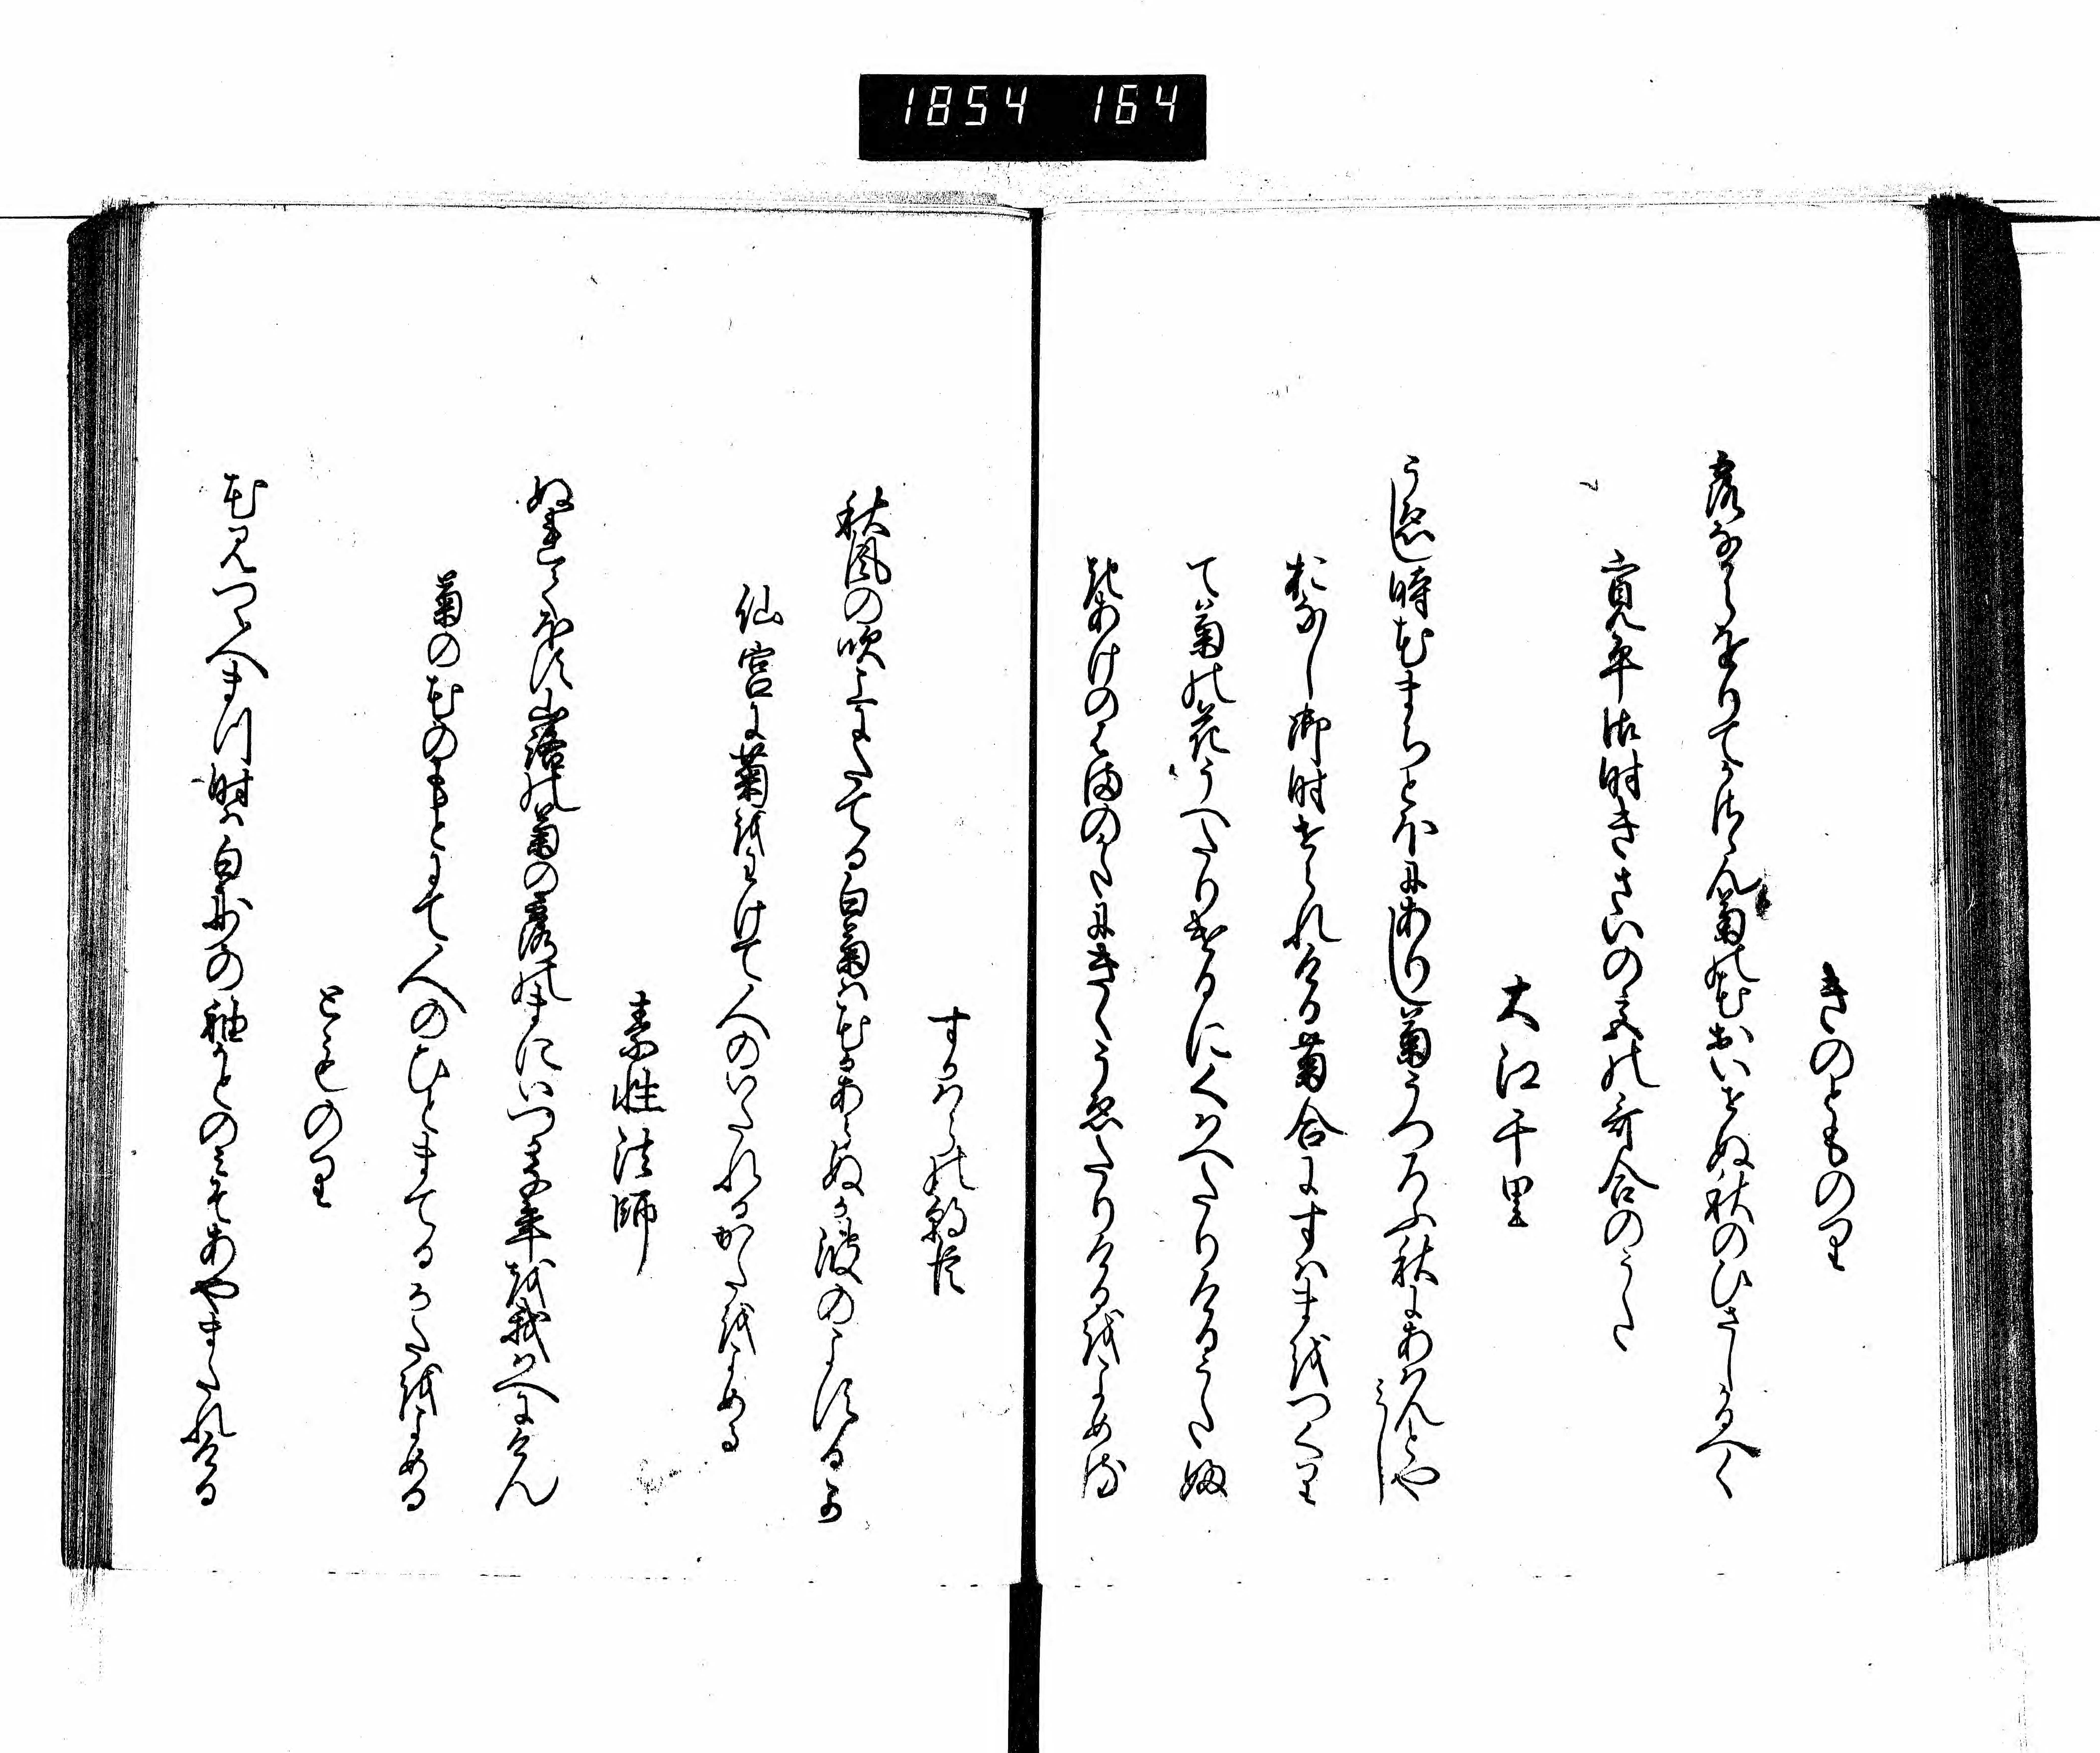 1854 164
きのとものり
露なからをりてかさゝん菊の花おいせぬ秋のひさしかるへく
寛平御時きさいの宮の哥合のうた
大江千里
うゑし時花まちとほにありし菊うつろふ秋にあはんとやみし
おなし御時せられける菊合にすはまをつくり
て菊の花うへたりけるにくはへたりけるうた吹
あけのはまのかたにきくうゑたりけるをよめる
すかはらの朝臣
秋風の吹上にたてる白菊は花かあらぬか波のよするか
仙宮に菊をわけて人のいたれるかたをよめる
素性法師
ぬれてほす山路の菊の露のまにいつか千年を我はへにけん
菊の花のもとにて人のひとまてるかたをよめる
とものり
花見つゝ人まつ時は白妙の袖かとのみそあやまたれける